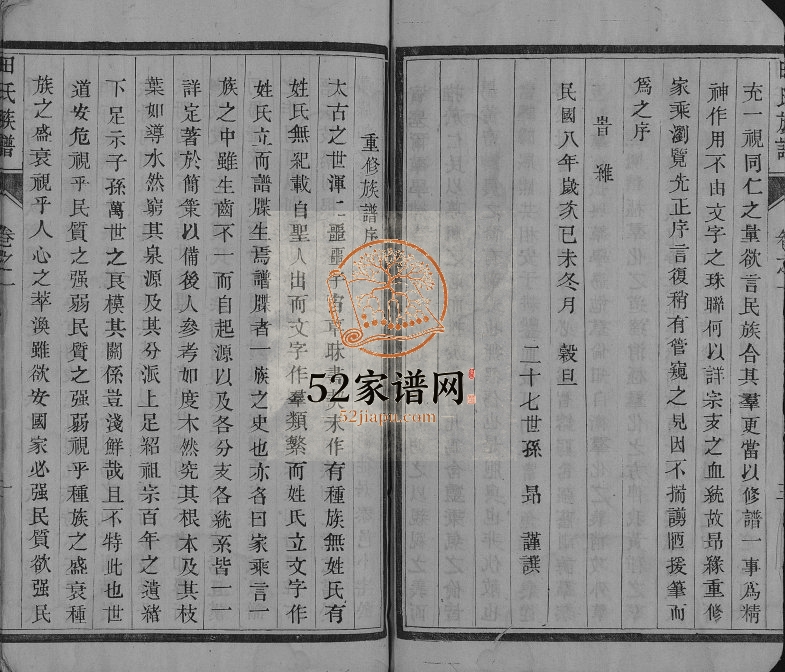 充一視同仁之量欲言民族合其羣更當以修譜一事爲精
神作用不由文字之珠聯何以詳宗支之血統故昂緣重修
家乘瀏覽先正序言復稍有管窺之見因不揣謭陋援筆而
爲之序
民國八年歲次己未冬月 穀旦
二十七世孫 昂 謹譔
重修族譜序
太古之世渾二噩噩子 作有種族無姓氏有
姓氏無紀載自聖人出而文字作羣類繁而姓氏立文字作
姓氏立而譜牒生焉譜牒者一族之史也亦名曰家乘言一
族之中雖生齒不一而自起源以及各分支各統系皆一一
詳定著於簡策以備後人參考如度木然究其根本及其枝
葉如導水然窮其泉源及其分派上足紹祖宗百年之遺緒
下足示子孫萬世之良模其關係豈淺鮮哉且不特此也世
道安危視乎民質之强弱民質之强弱視乎種族之盛衰種
族之盛衰視乎人心之萃渙雖欲安國家必强民質欲强民
田氏族譜
卷之一
一
52家谱网
52jiapu.com